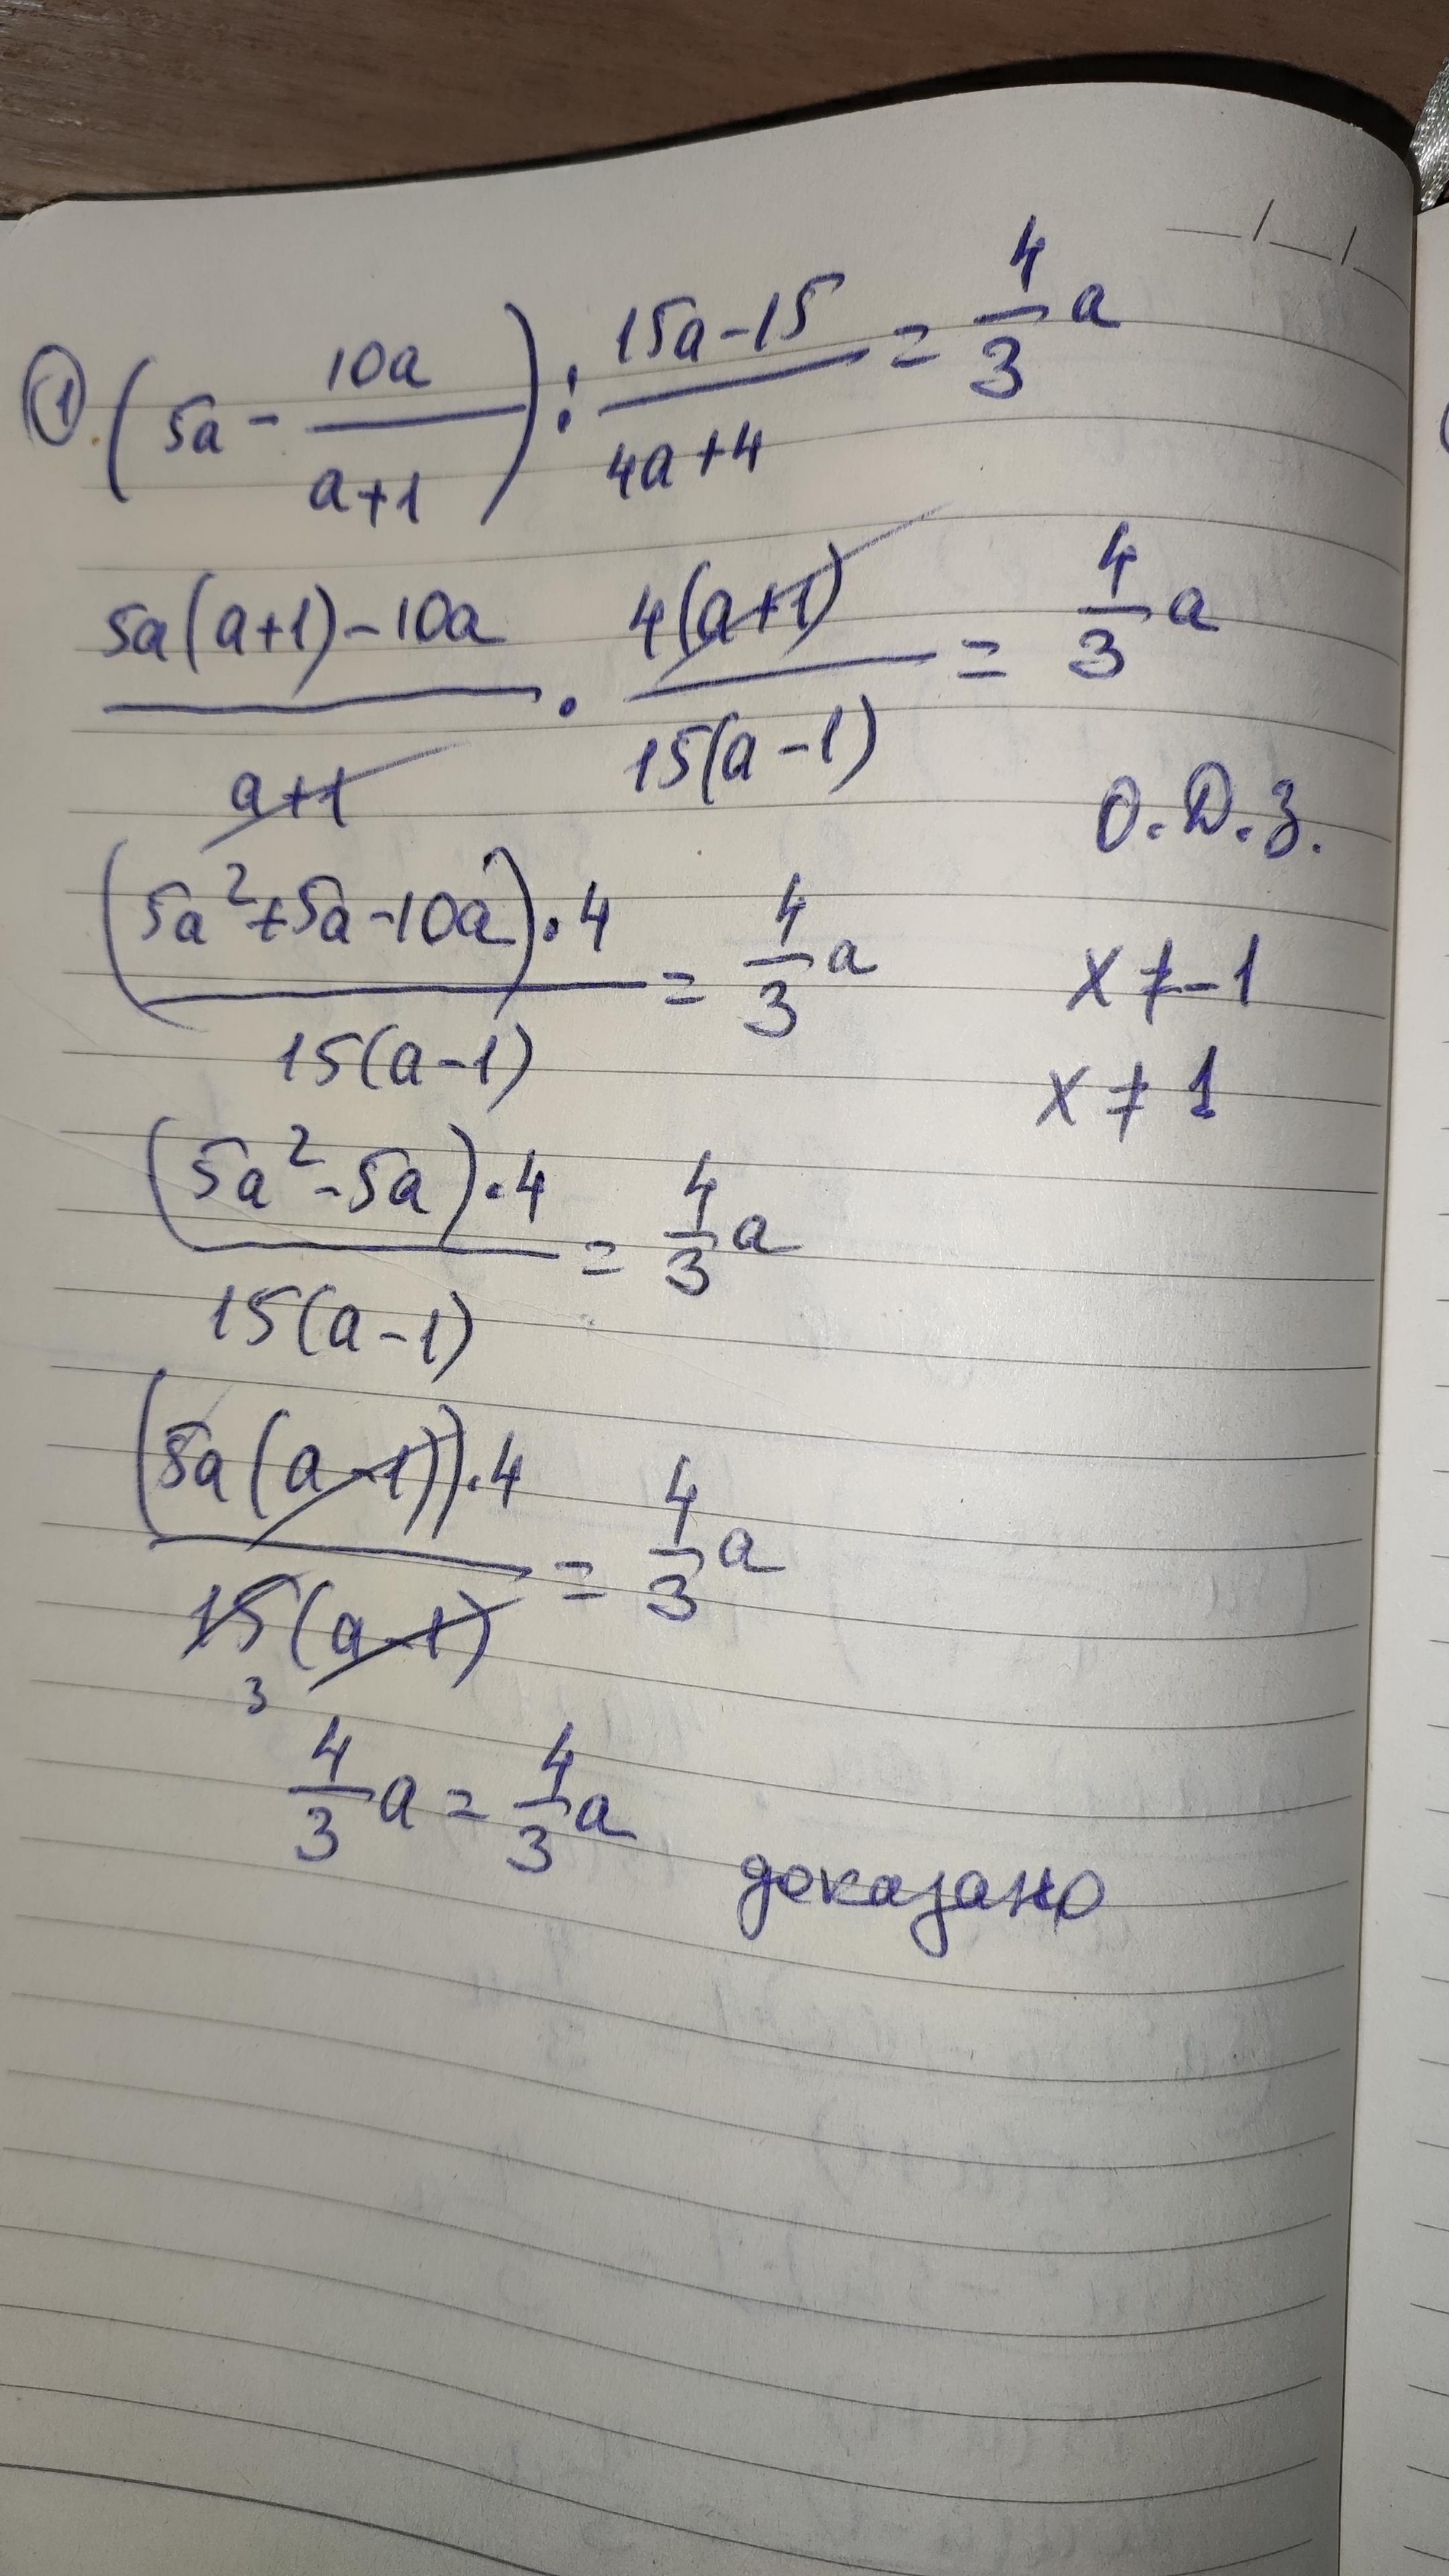 ① (5a - 10a/(a+1)) : (15a-15)/(4a+4) = 4/3 a
(5a(a+1)-10a)/(a+1) · 4(a+1)/(15(a-1)) = 4/3 a
О.Д.З.
(5a²+5a-10a)·4/(15(a-1)) = 4/3 a
x ≠ -1
x ≠ 1
(5a²-5a)·4/(15(a-1)) = 4/3 a
(5a(a-1))·4/(15(a-1)) = 4/3 a
3
4/3 a = 4/3 a
доказано